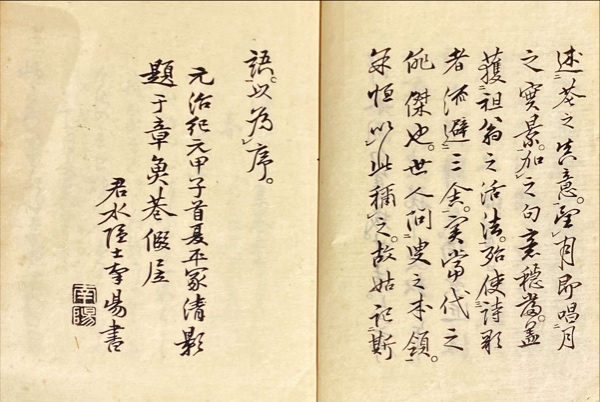 述花之真意。望月即唱月
之實景。加之句意穩當。盖
獲祖翁之活法。殆使詩歌
者流避三舍。実當代之
俳傑也。世人問叟之本領。
余恒以此稱之。故姑記斯
語。以為序。
元治紀元甲子首夏平冢清影
題于章魚巷假居
君水隠士南陽書
南陽